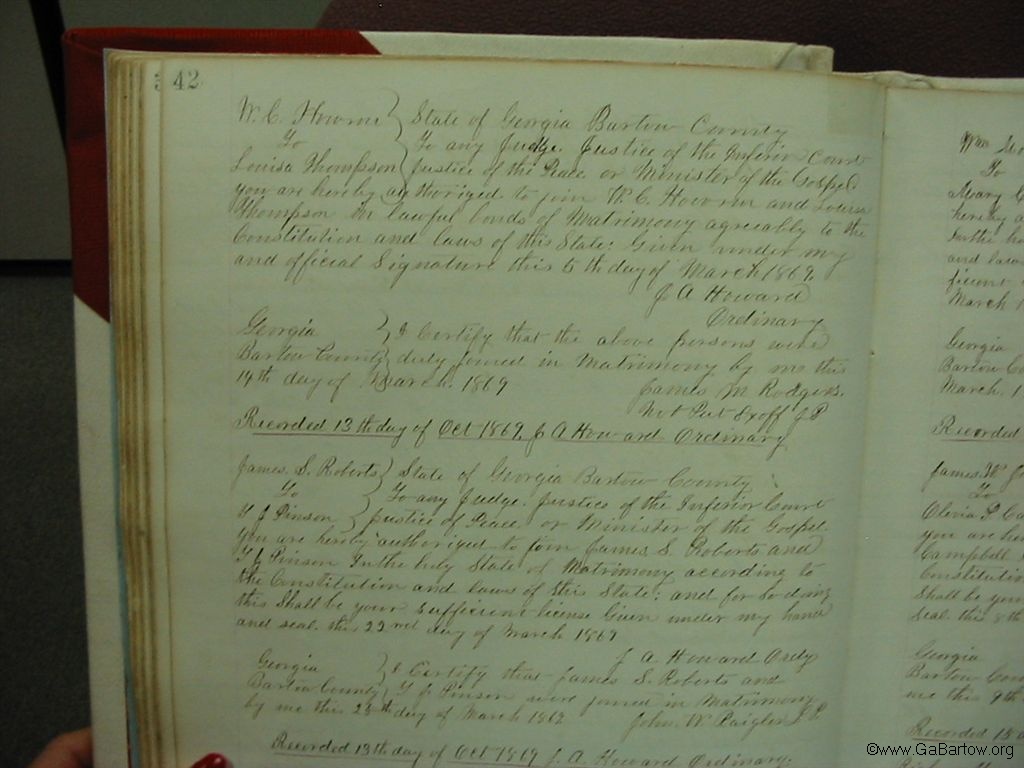 42
W. C. Howren } State of Georgia Bartow County
To } To any Judge. Justice of the Inferior Court
Louisa Thompson } justice of the Peace or Minister of the Gospel
you are hereby authorized to join W. C. Howren and Louisa
Thompson in lawful bonds of Matrimony agreably to the
Constitution and laws of this State: Given under my
and official Signature this 5th day of March 1869.
J A Howard
Ordinary
Georgia } I Certify that the above persons were
Bartow County } duly joined in Matrimony by me this
14th day of March. 1869
James M Rodgers.
Not Pub Exoff J P
Recorded 13th day of Oct 1869. J A Howard Ordinary
James. S. Roberts } State of Georgia Bartow County
To } To any Judge. Justice of the Inferior Court
Y J Pinson } justice of Peace or Minister of the Gospel
you are hereby authorized to join James S. Roberts and
Y J Pinson In the holy State of Matrimony according to
the Constitution and laws of this State: and for so doing
this Shall be your sufficient license Given under my hand
and seal. this 22nd day of March 1869
J A. Howard Ordy
Georgia } I Certify that James S. Roberts and
Bartow County } Y J. Pinson were joined in Matrimony
by me this 28th day of March 1869
John W. J P
Recorded 13th day of Oct 1869 J. A. Howard Ordinary.
Wm
To
Mary
hereby a
In the ho
and law
ficient
March 1
Georgia
Bartow Co
March. 1
Recorded
James W
To
Olivia P Ca
you are her
Campbell
Constitution
Shall be your
Seal. this 8th
Georgia
Bartow Coun
me this 9th
Recorded 13
©www.GaBartow.org